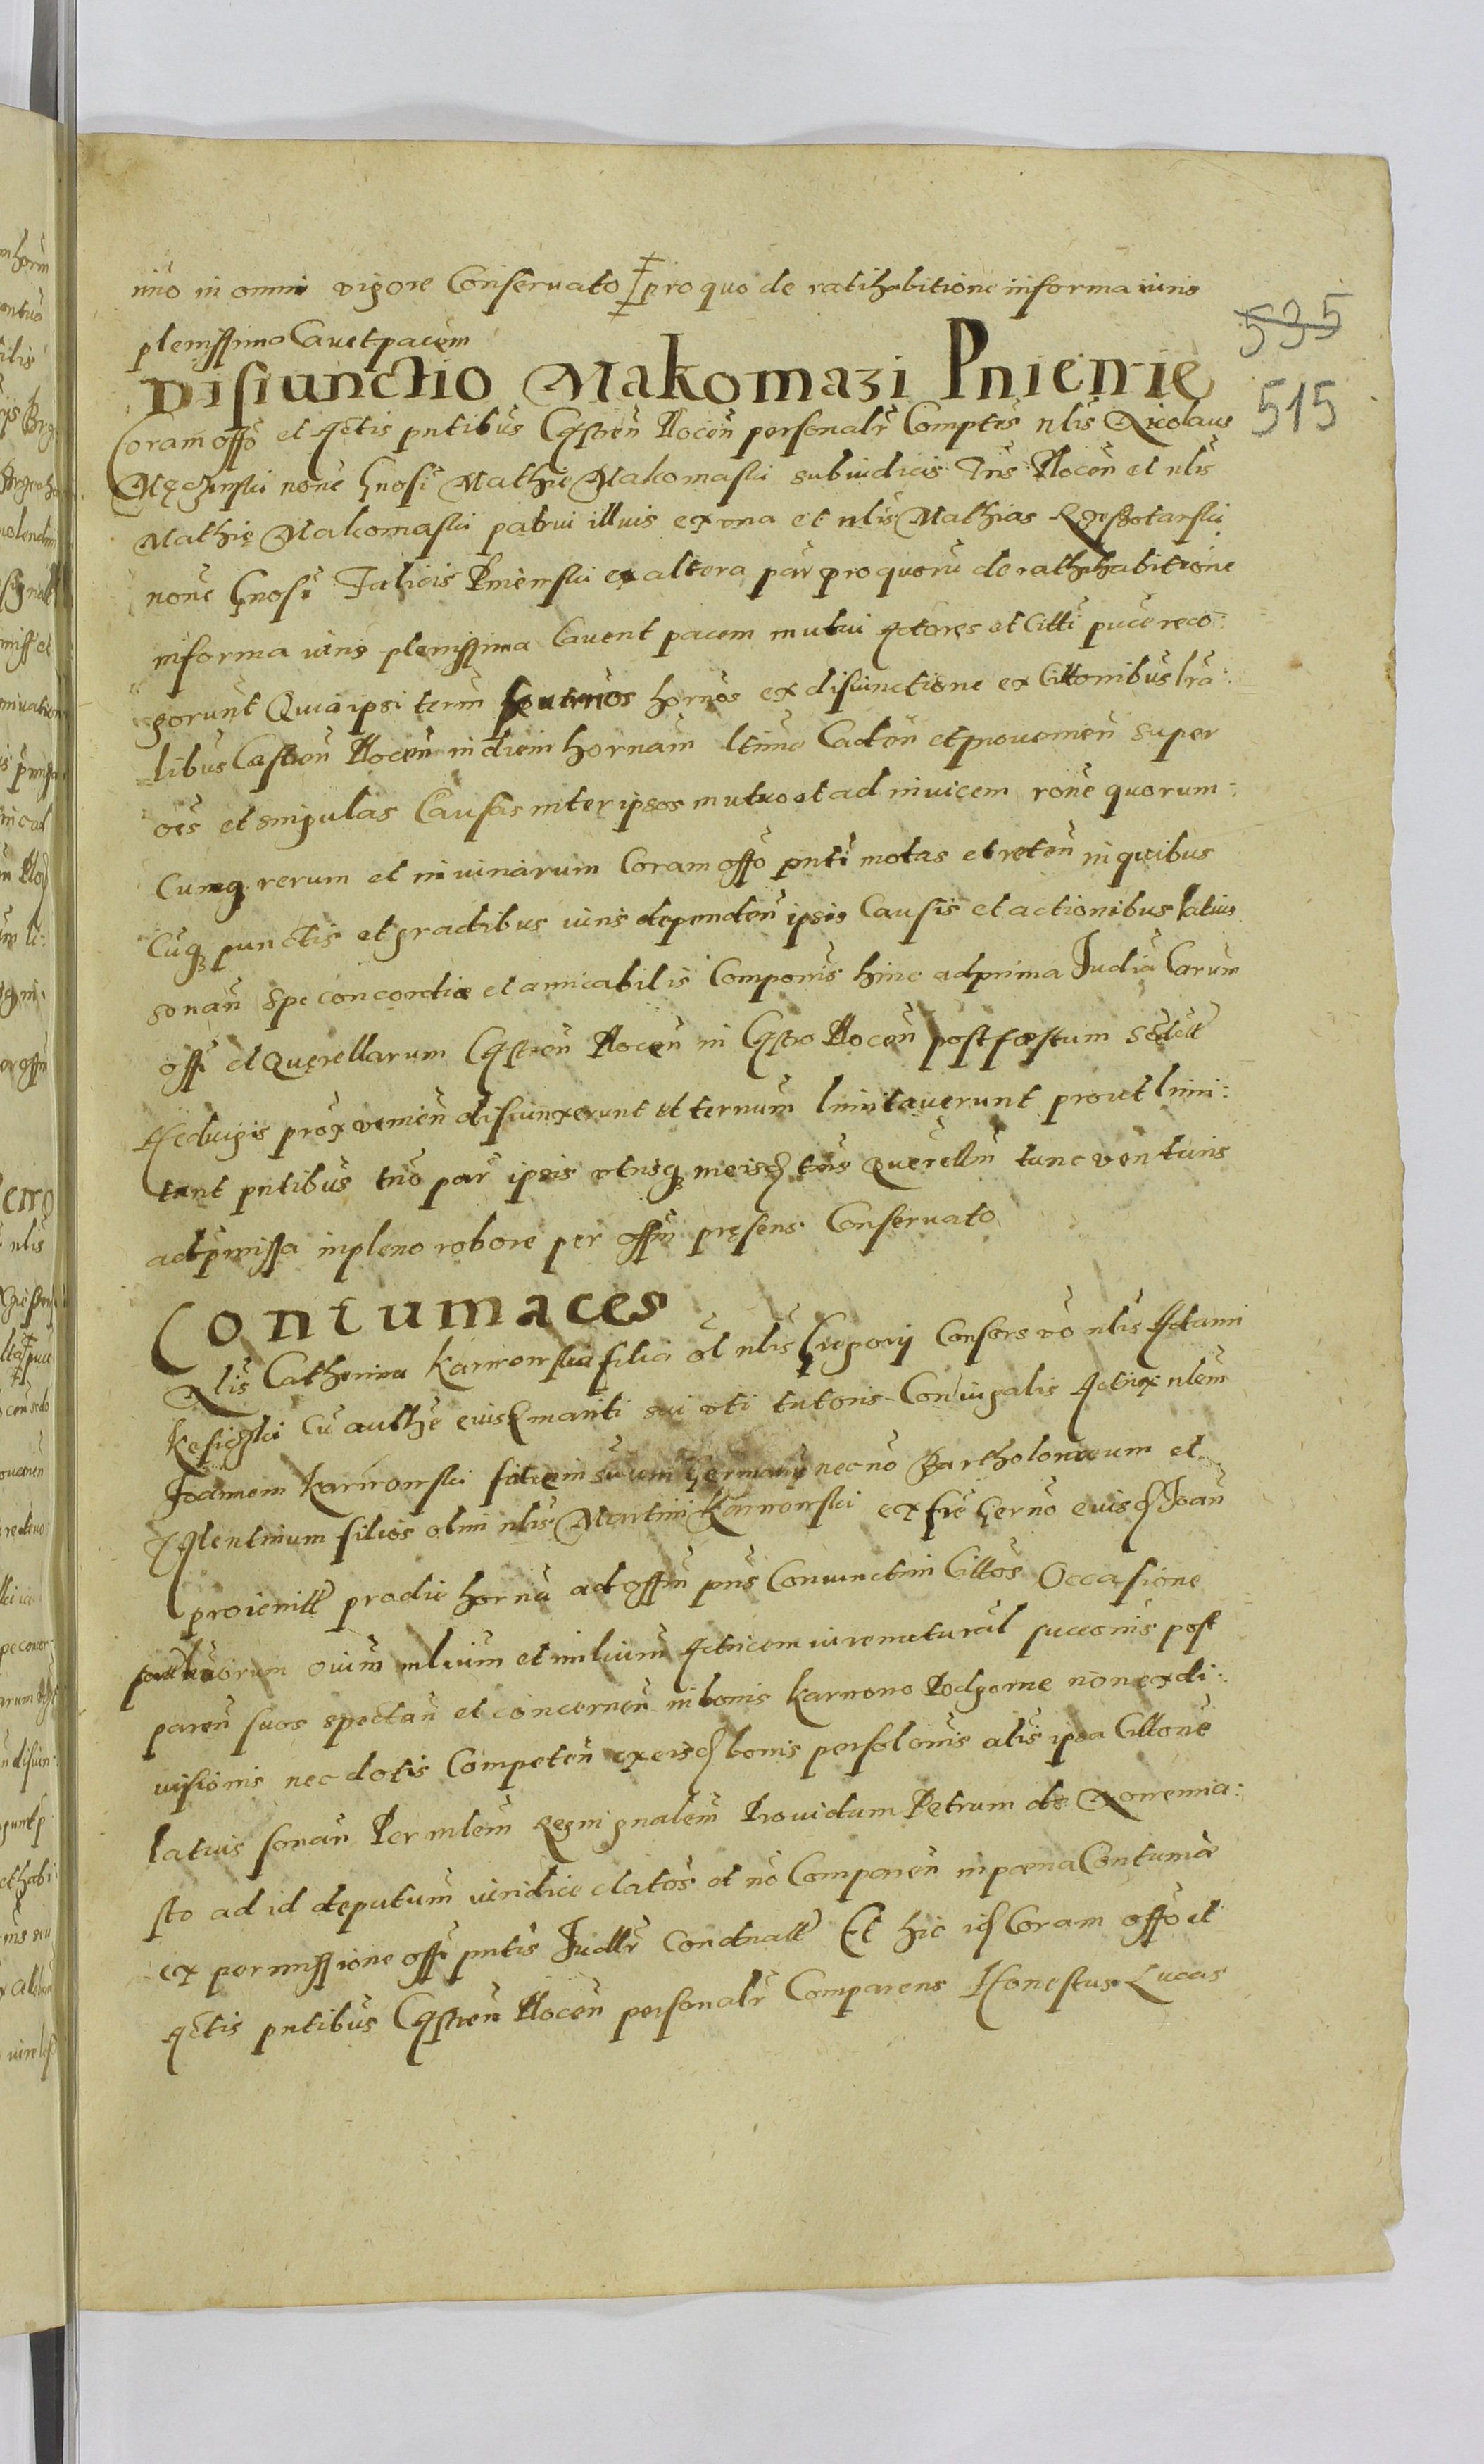 mno in omni vigore Conseruato ‡ pro quo de ratihabitione in forma iuris
535
plenissima Cauet pacem
Disiunctio Makomazi Pnienie
515
Coram offo et Actis pntibus Castren Plocen personalr Comptes nlis Nicolaus
Męczinski noñe Gnosi Mathie Makomaski subiudicis Tris Plocen et nlis
Mathię Makomaski patrui illius ex vna et nlis Mathias Rzeszotarski
noñe Gnosi Falicis Pnienski ex altera par pro quoru de rathihabitione
in forma iuris plenissima Cauent pacem mutui Actores et Citti puce reco:
gorunt Quia ipsi term hornos ex disiunctione ex Cittonibus lra:
libus Castren Plocen in diem hornam ltime Caden et prouenien super
oes et singulas Causas inter ipsos mutuo et ad inuicem rone quorum:
Cumq rerum et iniuriarum Coram offo pnti motas et reten in quibus
Cuq punctis et gradibus iuris dependen ipsis Causis et actionibus latius
sonan spe concordiæ et amicabilis Componis hinc ad prima Judicia Carum
offi et Querellarum Castren Plocen in Castro Plocen post fæstum Sctæ
Heduigis prox venien disiunxerunt et ternum limitauerunt prout limi:
tant pntibus tno par ipsis vtrisq in eisd tris Querellm tunc venturis
ad pmissa in pleno robore per offm pręsens Conseruato
Contumaces
Nlis Catherina Karwowska filia ol nlis Gregorij Consors vo nlis Adami
Kesiczki cu authe eiusd mariti sui vti tutoris Coniugalis Actrix nlem
Joannem Karwowski fatrem suum Germanu nec no Bartholomeum et
Valentinum filios olim nlis Martini Karwowski ex fre Gerno eiusd Joan
proienitt pro die horna ad offm pns Coniunctim Cittos Occasione
ouium mlium et imlium Actricem iure naturál succonis post
paren suos spectan et concernen in bonis Karwowo Podgorne non ex di:
uisionis nec dotis Competen ex eisd bonis persolonis alis ipsa Cittone
latius sonan Per mlem Regni gnalem Prouidum Petrum de
sto ad id deputum iuridice clatos et no Comparen in pæna Contumæ
ex permissione offi pntis Judllr condnatt Et hic id Coram offo et
Actis pntibus Castren Plocen personalr Comparens Honestus Lucas